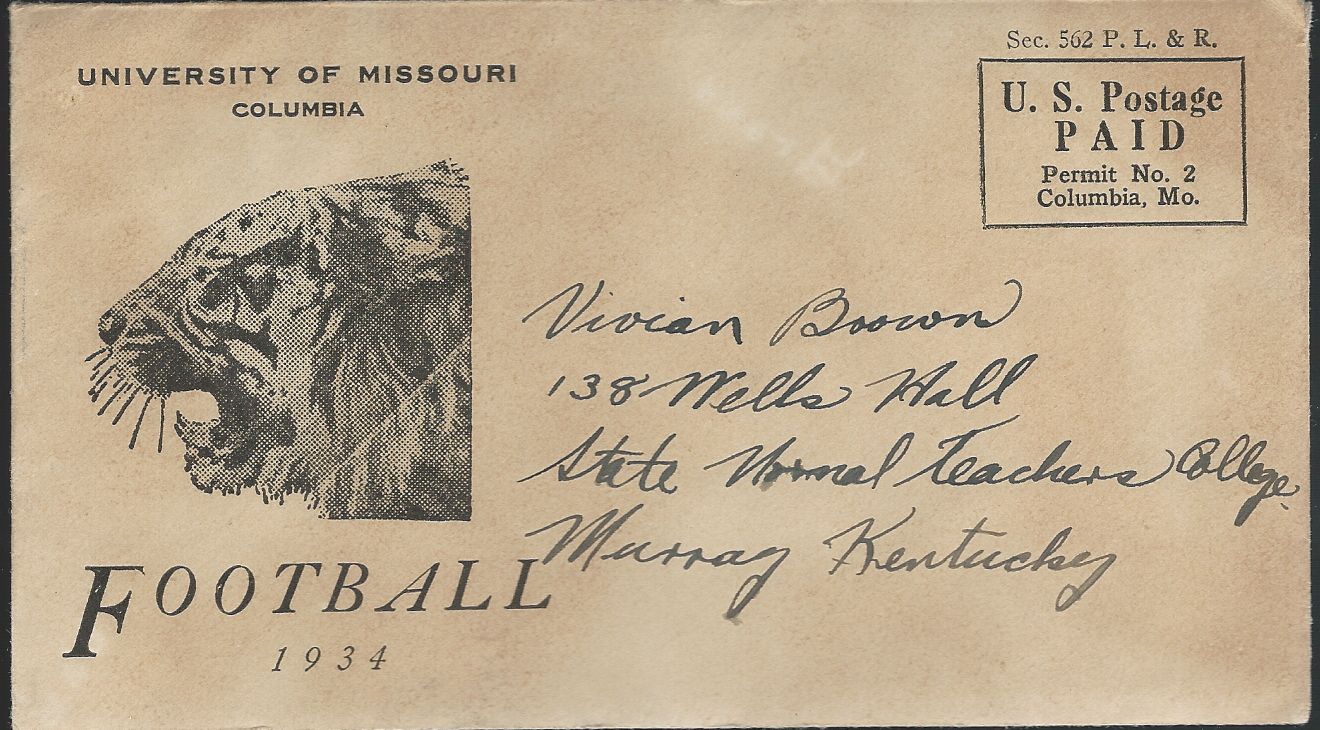 UNIVERSITY OF MISSOURI
COLUMBIA
Sec. 562 P. L. & R.
U. S. Postage
PAID
Permit No. 2
Columbia, Mo.
Vivian Brown
138 Wells Hall
State Normal Teachers College
Murray Kentucky
FOOTBALL
1934